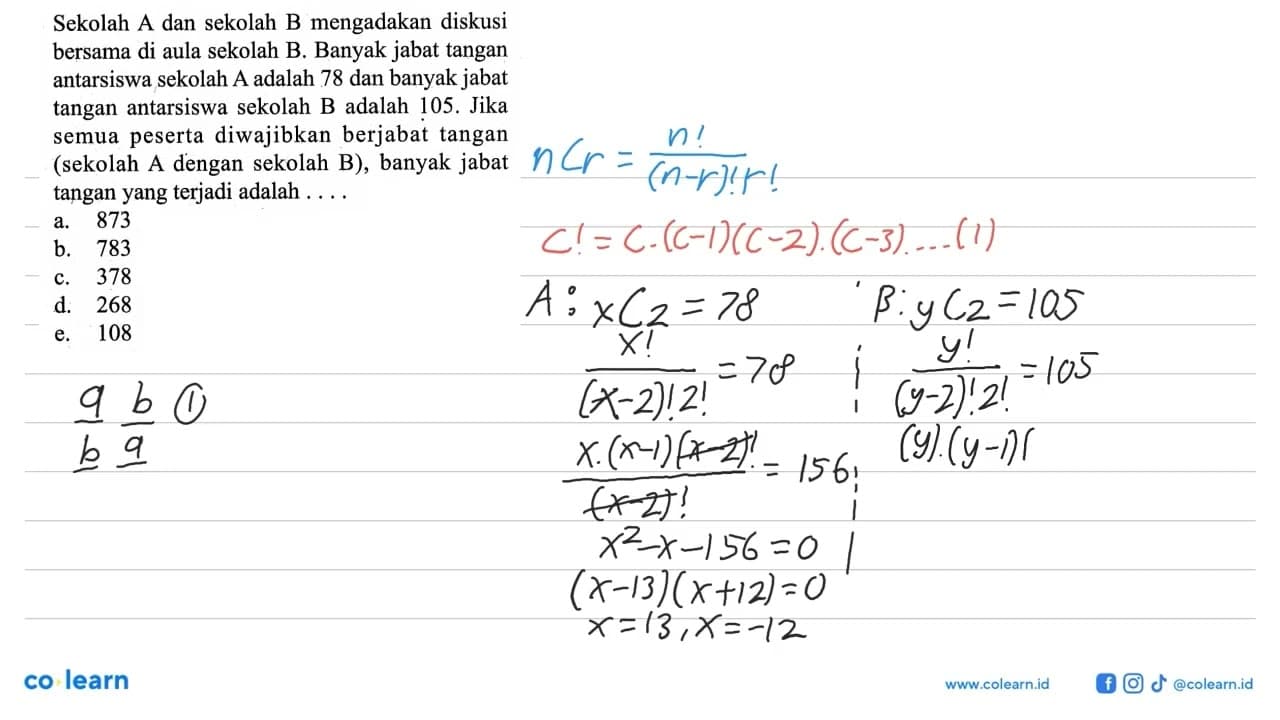 Sekolah A dan sekolah B mengadakan diskusi
bersama di aula sekolah B. Banyak jabat tangan
antarsiswa sekolah A adalah 78 dan banyak jabat
tangan antarsiswa sekolah B adalah 105. Jika
semua peserta diwajibkan berjabat tangan
(sekolah A dengan sekolah B), banyak jabat
tangan yang terjadi adalah . . . .
a. 873
b. 783
c. 378
d. 268
e. 108
a b ①
b a
nCr = n!/(n-r)!r!
C! = C.(C-1)(C-2).(C-3)....(1)
A: xC2 = 78
x!/(x-2)!2! = 78
x.(x-1)(x-2)!/(x-2)! = 156
x²-x-156=0
(x-13)(x+12)=0
x=13, x=-12
B: yC2=105
y!/(y-2)!2! = 105
(y).(y-1)(
co learn
www.colearn.id
@colearn.id